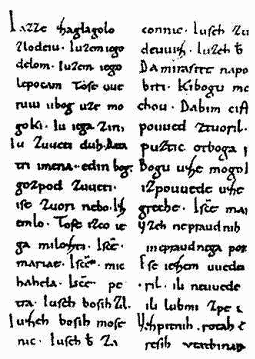 Iazze zaglagolo
zlodeiu. Iuzem iego
delom. Iuzem iego
lepocam. Tose uue
ruiu ubog uze mo
goki. Iu iega zin.
Iu zuueti duh. Da ta
tri imena. edin bog.
gozpod zuueti.
ise zuori nebo. Iz
emlo. Tose izco ie
ga milozti. Isce.
mariae. Isce. mic
hahela. Isce. pe
tra. Iuseh bosih zl.
Iuzeh bosih mose
nic. Iuseh b. za
connic. Iuseh zu
deuuiz. Iuzeh b.
Da mirazite napo
biti. Kibogu mo
chou. Dabim cist
pouued ztuoril.
puztic otboga
Bogu uze mogo
izpouuede uze
greche. Isce. mar
uzeh nepraudnih
inepraudnega po
Ese iezem uuede
ril. ili neuuede
ili lubmi zpe
Uzpitnih. rotah